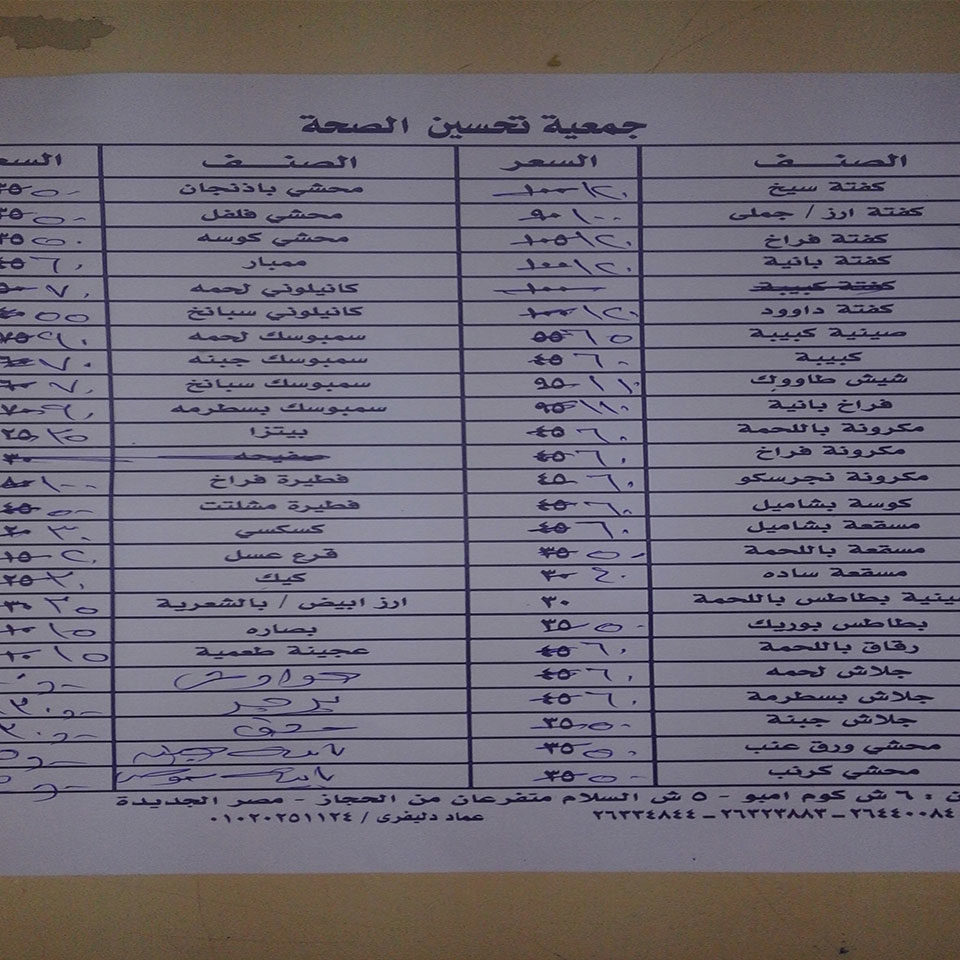 جمعية تحسين الصحة
الصنف السعر الصنف
كفتة سيخ ١٠٠ ١٢٠ محشي باذنجان ٣٥ ٥٠
كفتة ارز / جملى ٩٠ ١٠٠ محشي فلفل ٣٥ ٥٠
كفتة فراخ ١٠٥ ١٢٠ محشي كوسه ٣٥ ٥٠
كفتة بانية ١٠٠ ١٢٠ ممبار ٤٥ ٦٠
كفتة كبيبة ١٠٠ كانيلوني لحمه ٧٠
كفتة داوود ١٠٠ ١٢٠ كانيلوني سبانخ ٥٥
صينية كبيبة ٥٥ ٦٥ سمبوسك لحمه ٧٥ ٩٠
كبيبة ٤٥ ٦٠ سمبوسك جبنه ٦٠ ٧٠
شيش طاووك ٩٥ ١١٠ سمبوسك سبانخ ٦٠ ٧٠
فراخ بانية ٩٥ ١١٠ سمبوسك بسطرمه ٧٠ ٩٠
مكرونة باللحمة ٤٥ ٦٠ بيتزا ٢٥ ٣٥
مكرونة فراخ ٤٥ ٦٠ صفيحه ٣٠
مكرونة نجرسكو ٤٥ ٦٠ فطيرة فراخ ٨٠ ١٠٠
كوسة بشاميل ٤٥ ٦٠ فطيرة مشلتت ٤٥ ٥٠
مسقعة بشاميل ٤٥ ٦٠ كسكسي ٢٠ ٣٠
مسقعة باللحمة ٣٥ ٥٠ قرع عسل ١٥ ٢٠
مسقعة ساده ٣٠ ٤٠ كيك ٢٥ ٣٠
بطاطس باللحمة ٣٠ ارز ابيض / بالشعرية ٣٠ ٣٥
بطاطس بوريك ٣٥ ٥٠ بصاره ١٠ ١٥
رقاق باللحمة ٤٥ ٦٠ عجينة طعمية ١٠ ١٥
جلاش لحمه ٤٥ ٦٠ حواوشى
جلاش بسطرمة ٤٥ ٦٠
جلاش جبنة ٣٥ ٥٠
محشي ورق عنب ٣٥ ٥٠
محشي كرنب ٣٥ ٥٠
٦ ش كوم امبو - ٥ ش السلام متفرعان من الحجاز - مصر الجديدة
٢٦٤٤٠٠٨٤ - ٢٦٣٢٣٨٨٣ - ٢٦٣٣٤٨٤٤ عماد دليفرى / ٠١٠٢٠٢٥١١٢٤